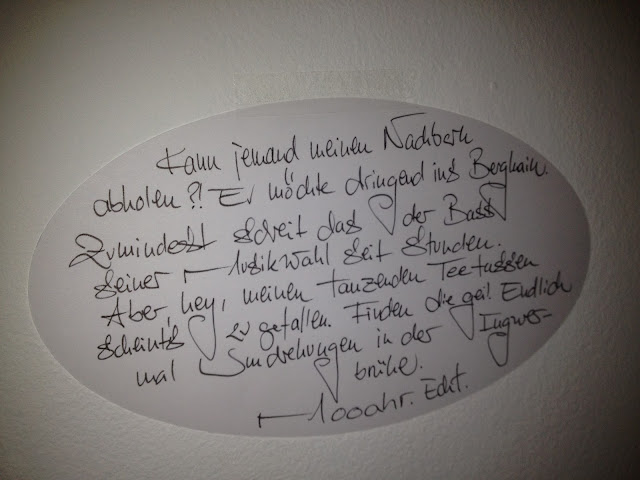 Kann jemand meinen Nachbarn
abholen?! Er möchte dringend ins Berghain.
Zumindest schreit das der Bass
seiner Musikwahl seit Stunden.
Aber, hey, meinen tanzenden Teetassen
scheint's zu gefallen. Finden die geil. Endlich
mal Umdrehungen in der Ingwer-
brühe.